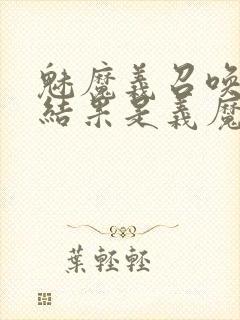 魅魔義召喚
結果是義魔
葉輕輕